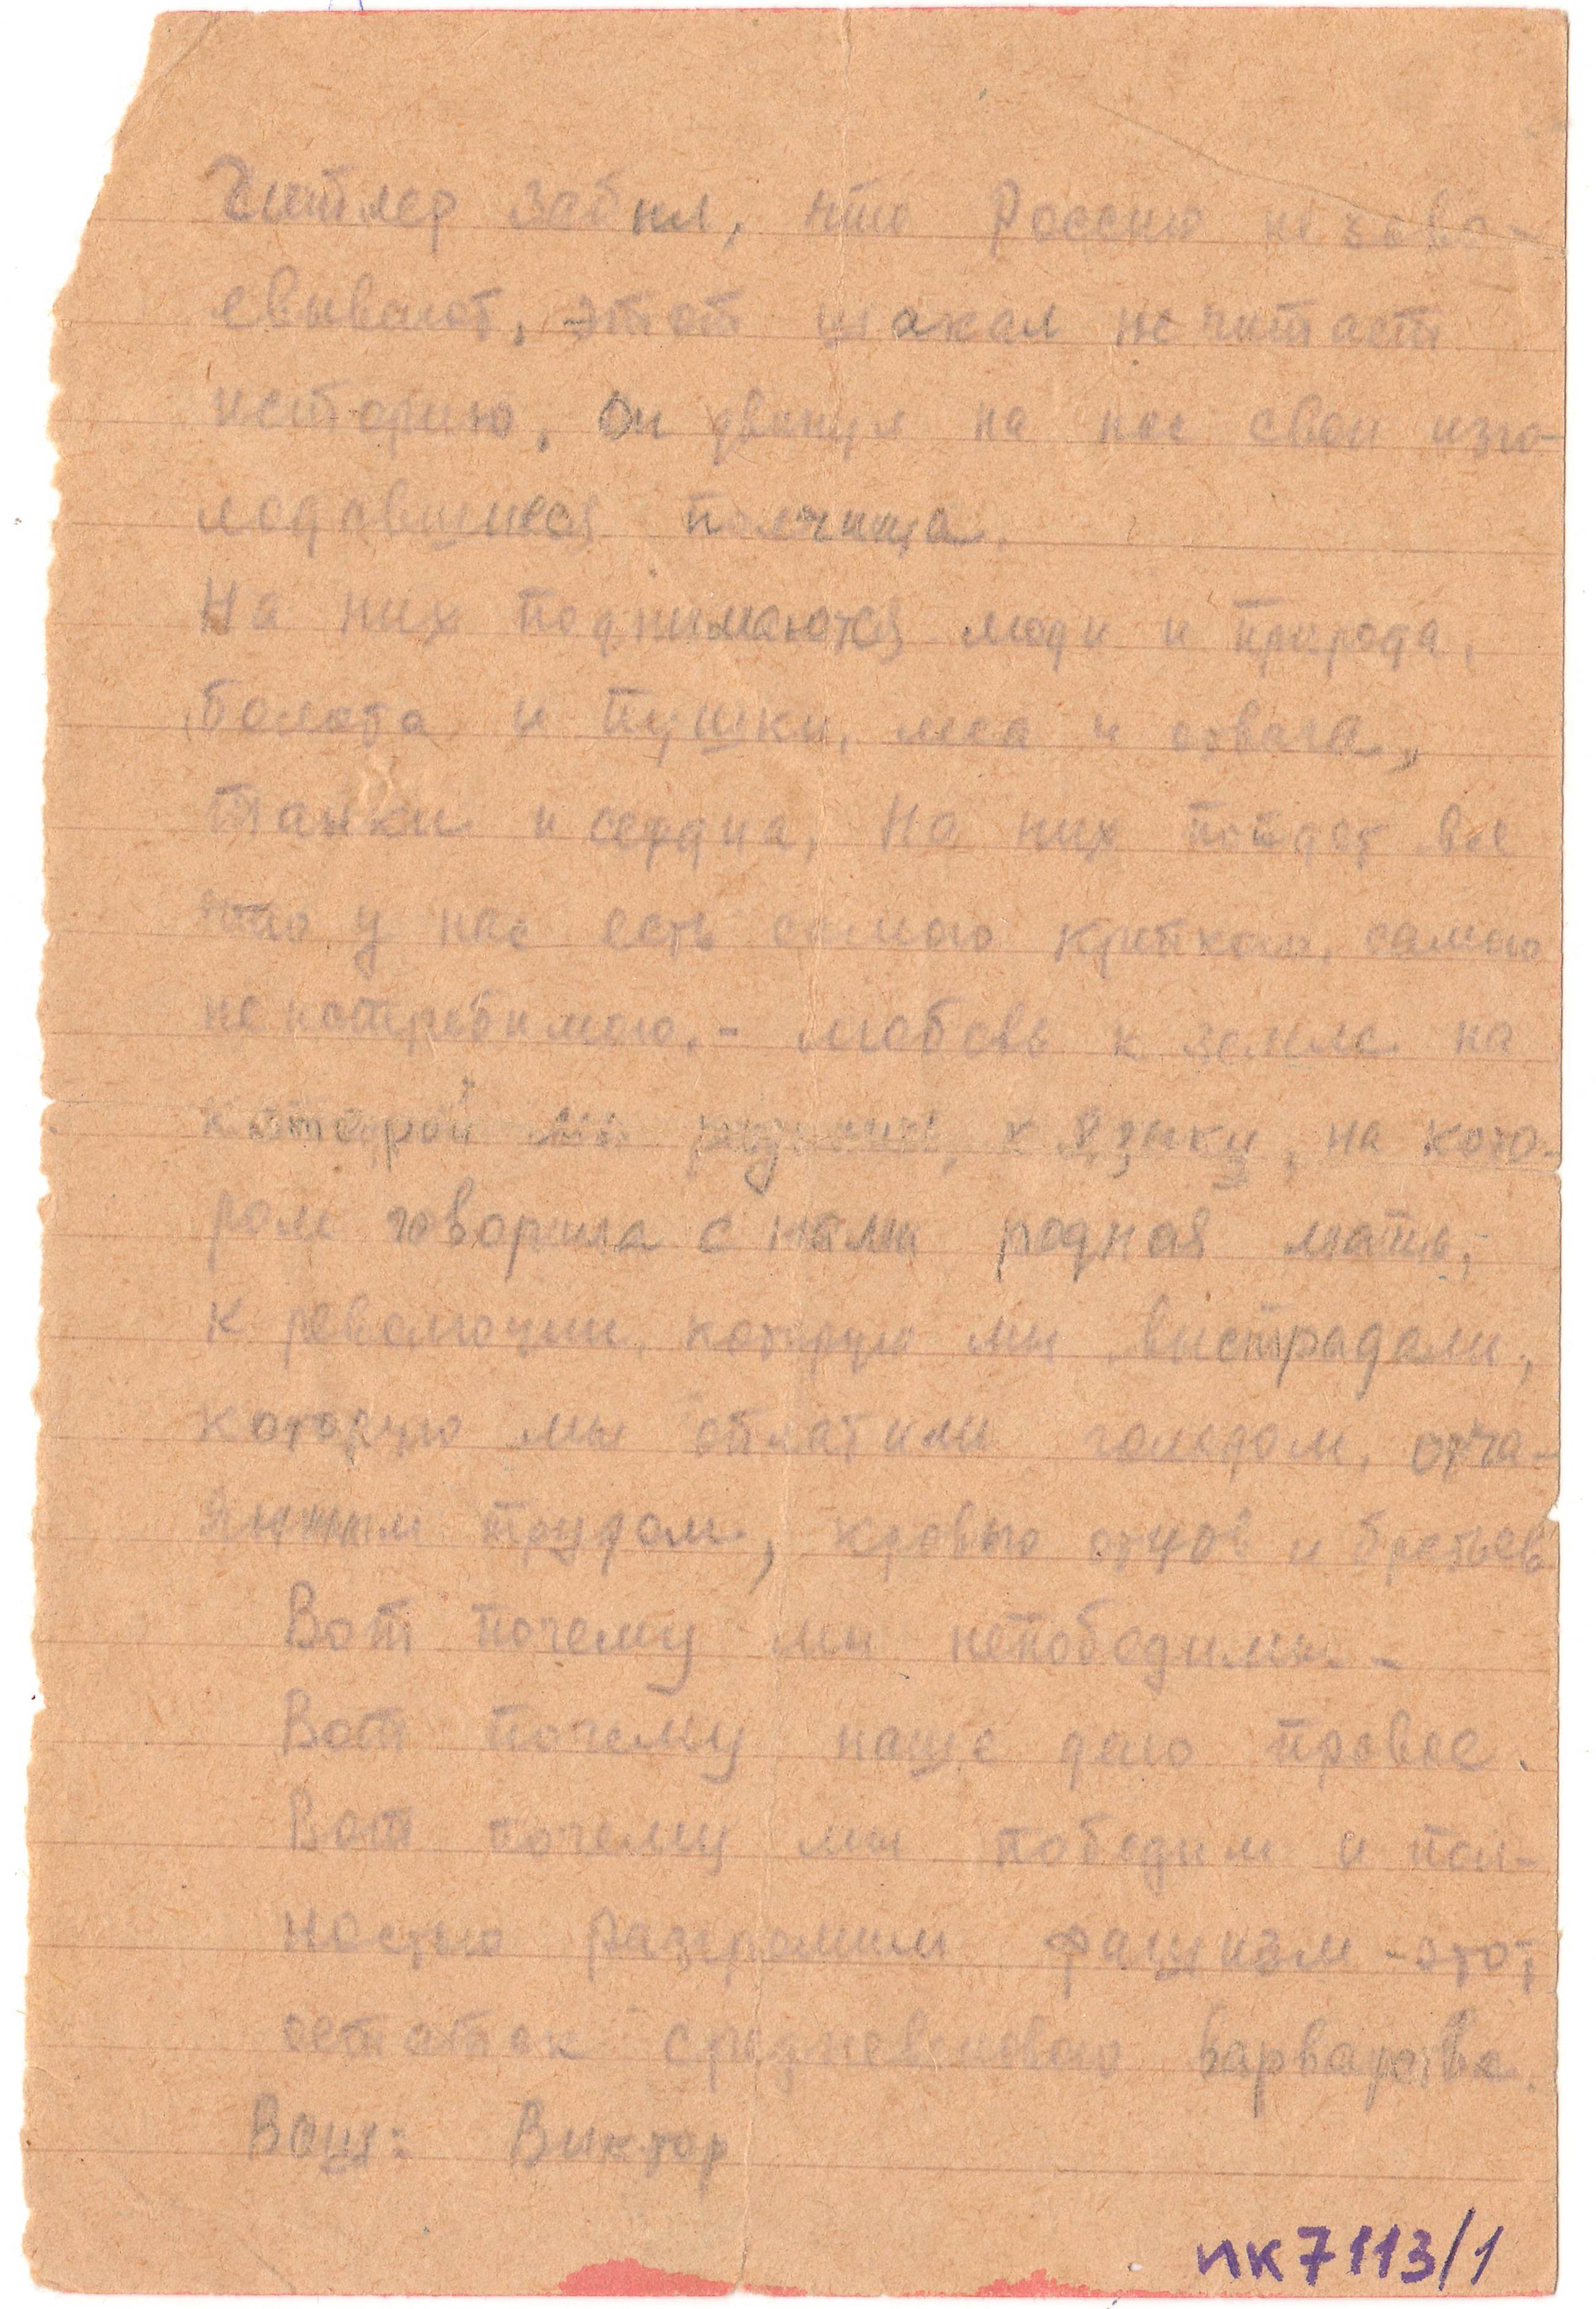 Гитлер забыл, что Россию не заво-
евывают, этот шакал не читает
историю. Он двинул на нас свои изго-
лодавшиеся полчища.
На них поднимаются люди и природа,
болота и пушки, леса и отвага,
танки и сердца, На них пойдет все
что у нас есть самого крепкого, самого
неистребимого. - любовь к земле на
которой мы, к языку, на кото-
ром говорила с нами родная мать,
к революции, которую мы выстрадали,
которую мы оплатили голодом, отча-
янным трудом, кровью отцов и братьев
Вот почему мы непобедимы. -
Вот почему наше дело правое.
Вот почему мы победим и пол-
ностью разгромим фашизм - этот
остаток средневекового варварства.
Ваш: Виктор
ПК7113/1